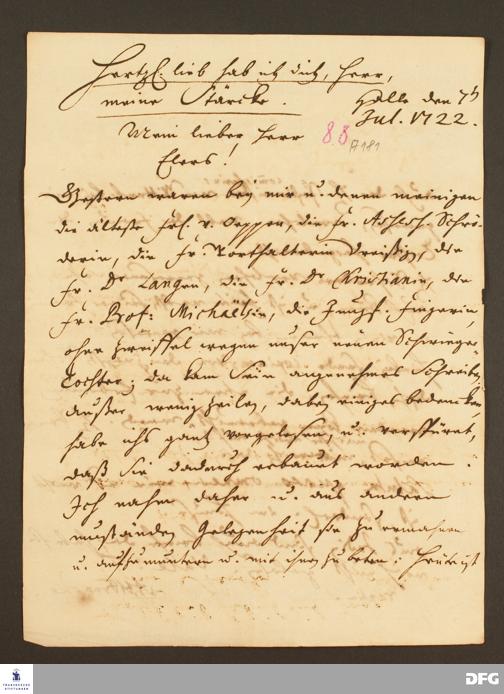 Hertzl. lieb hab ich dich, Herr,
meine Stärcke.
Halle den 7th
Jul. 1722.
Mein lieber Herr
Elers!
88
A 181
Gestern waren bey mir u. denen meinigen
die älteste Frl. v. Oeppen, die Fr. Schrö-
derin, die Fr. Dreißig, die
Fr. Dr Langen, die Fr. Dr Christianin, die
Fr. Prof: Michaëlsin, die Jungf. Fingerin,
ohne zweiffel wegen unser neuen Schwieger-
Tochter; da kam Sein angenehmes Schreiben,
außer wenig zeilen, dabey einiges bedencken
habe ichs gantz vorgelesen, u. verspüret,
daß Sie dadurch erbauet worden.
Ich nahm daher u. aus andern
umständen Gelegenheit sie zu ermahnen
u. aufzumuntern u. mit ihnen zu beten: heute ist
FRANCKESCHE STIFTUNGEN
DFG